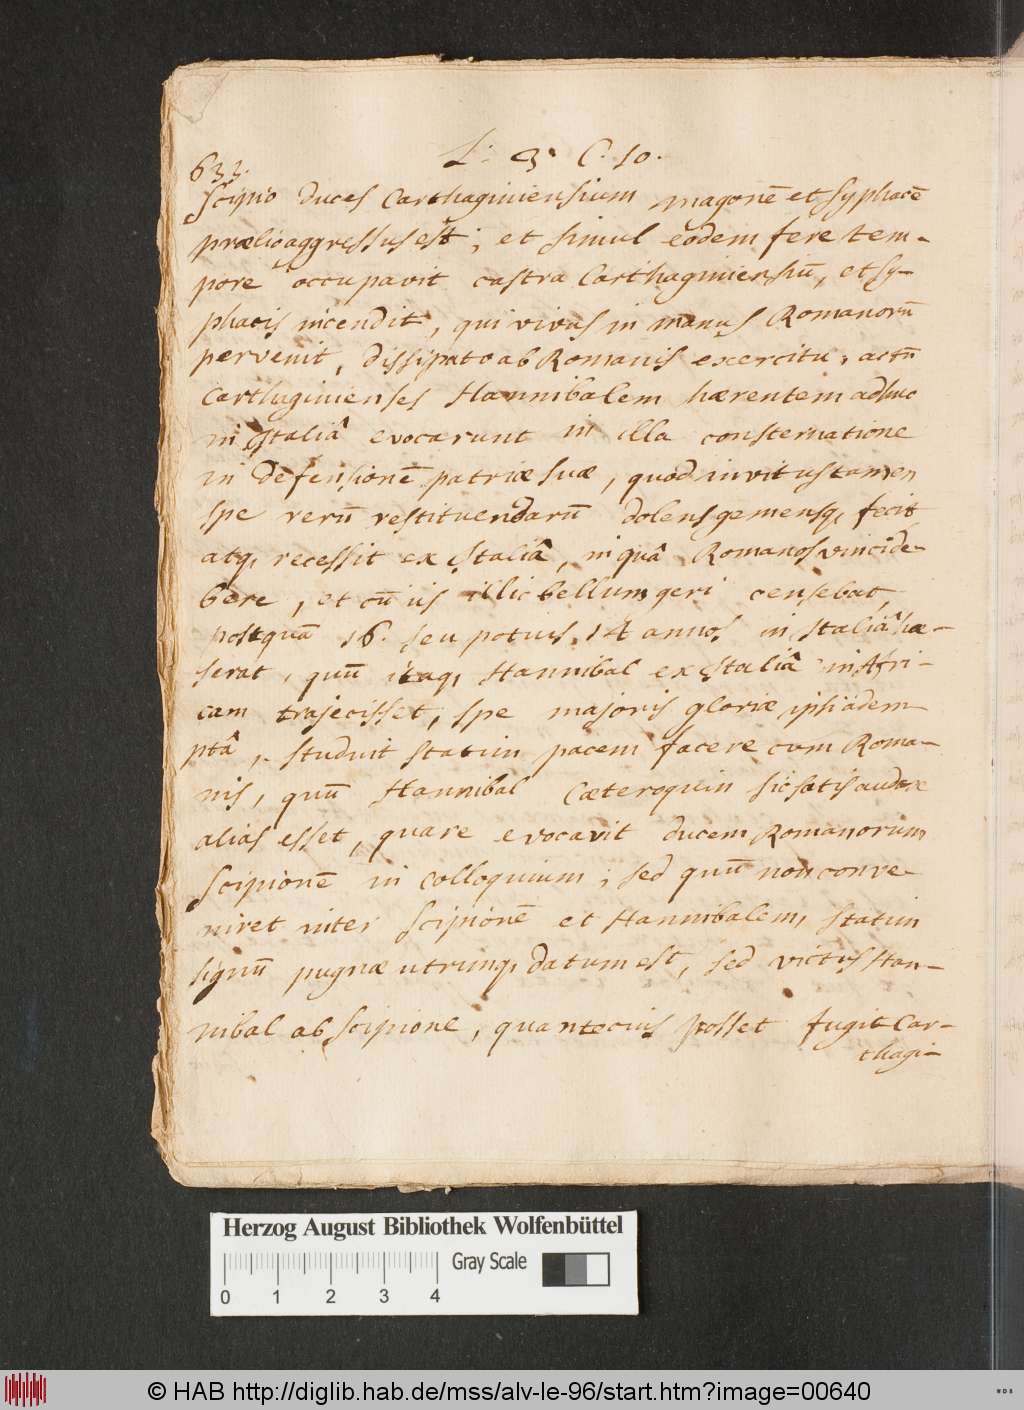 L: 3. C. 10.
633.
Scipio duces Carthaginiensium Magonē et Syphacē
prælio aggressus est; et simul eodem fere tem-
pore occupavit castra Carthaginiensiū, et Sy-
phacis incendit, qui vivus in manus Romanorū
pervenit, dissipato ab Romanis exercitu,
Carthaginienses Hannibalem hærentem adhuc
in Italiâ evocarunt in illa consternatione
in defensionē patriæ suæ, quod invitus tamen
spe rerū restituendarū dolens gemensq, fecit
atq, recessit ex Italiâ, in quâ Romanos vinci de-
bere, et cū iis illic bellum geri censebat,
postquā 16. seu potius 14 annos in Italiâ hæ-
serat, quū itaq, Hannibal ex Italiâ in Afri-
cam trajecisset, spe majoris gloriæ ipsi adem-
ptâ, studuit statim pacem facere cum Roma-
nis, quū Hannibal cæteroquin sic satis audax
alias esset, quare evocavit ducem Romanorum
Scipionē in colloquium; sed quū non conve-
niret inter Scipionē et Hannibalem, statim
signū pugnæ utrinq, datum est, sed victus Han-
nibal ab Scipione, quantocius posset fugit Car-
thagi-
Herzog August Bibliothek Wolfenbüttel
Gray Scale
0 1 2 3 4
© HAB http://diglib.hab.de/mss/alv-le-96/start.htm?image=00640